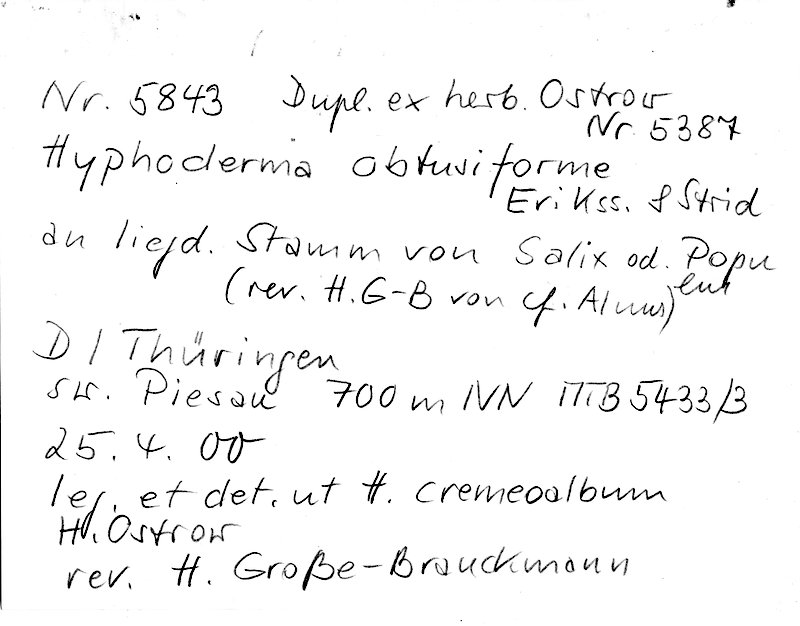 Nr. 5843 Dupl. ex herb. Ostrow
Nr 5387
Hyphoderma obtusiforme
Erikss. & Strid
an liegd. Stamm von Salix od. Popu
lus
(rev. H.G-B von cf. Alnus)
D / Thüringen
sw. Piesau 700 m NN MTB 5433/3
25. 4. 00
leg. et det. ut H. cremeoalbum
H. Ostrow
rev. H. Große-Brauckmann